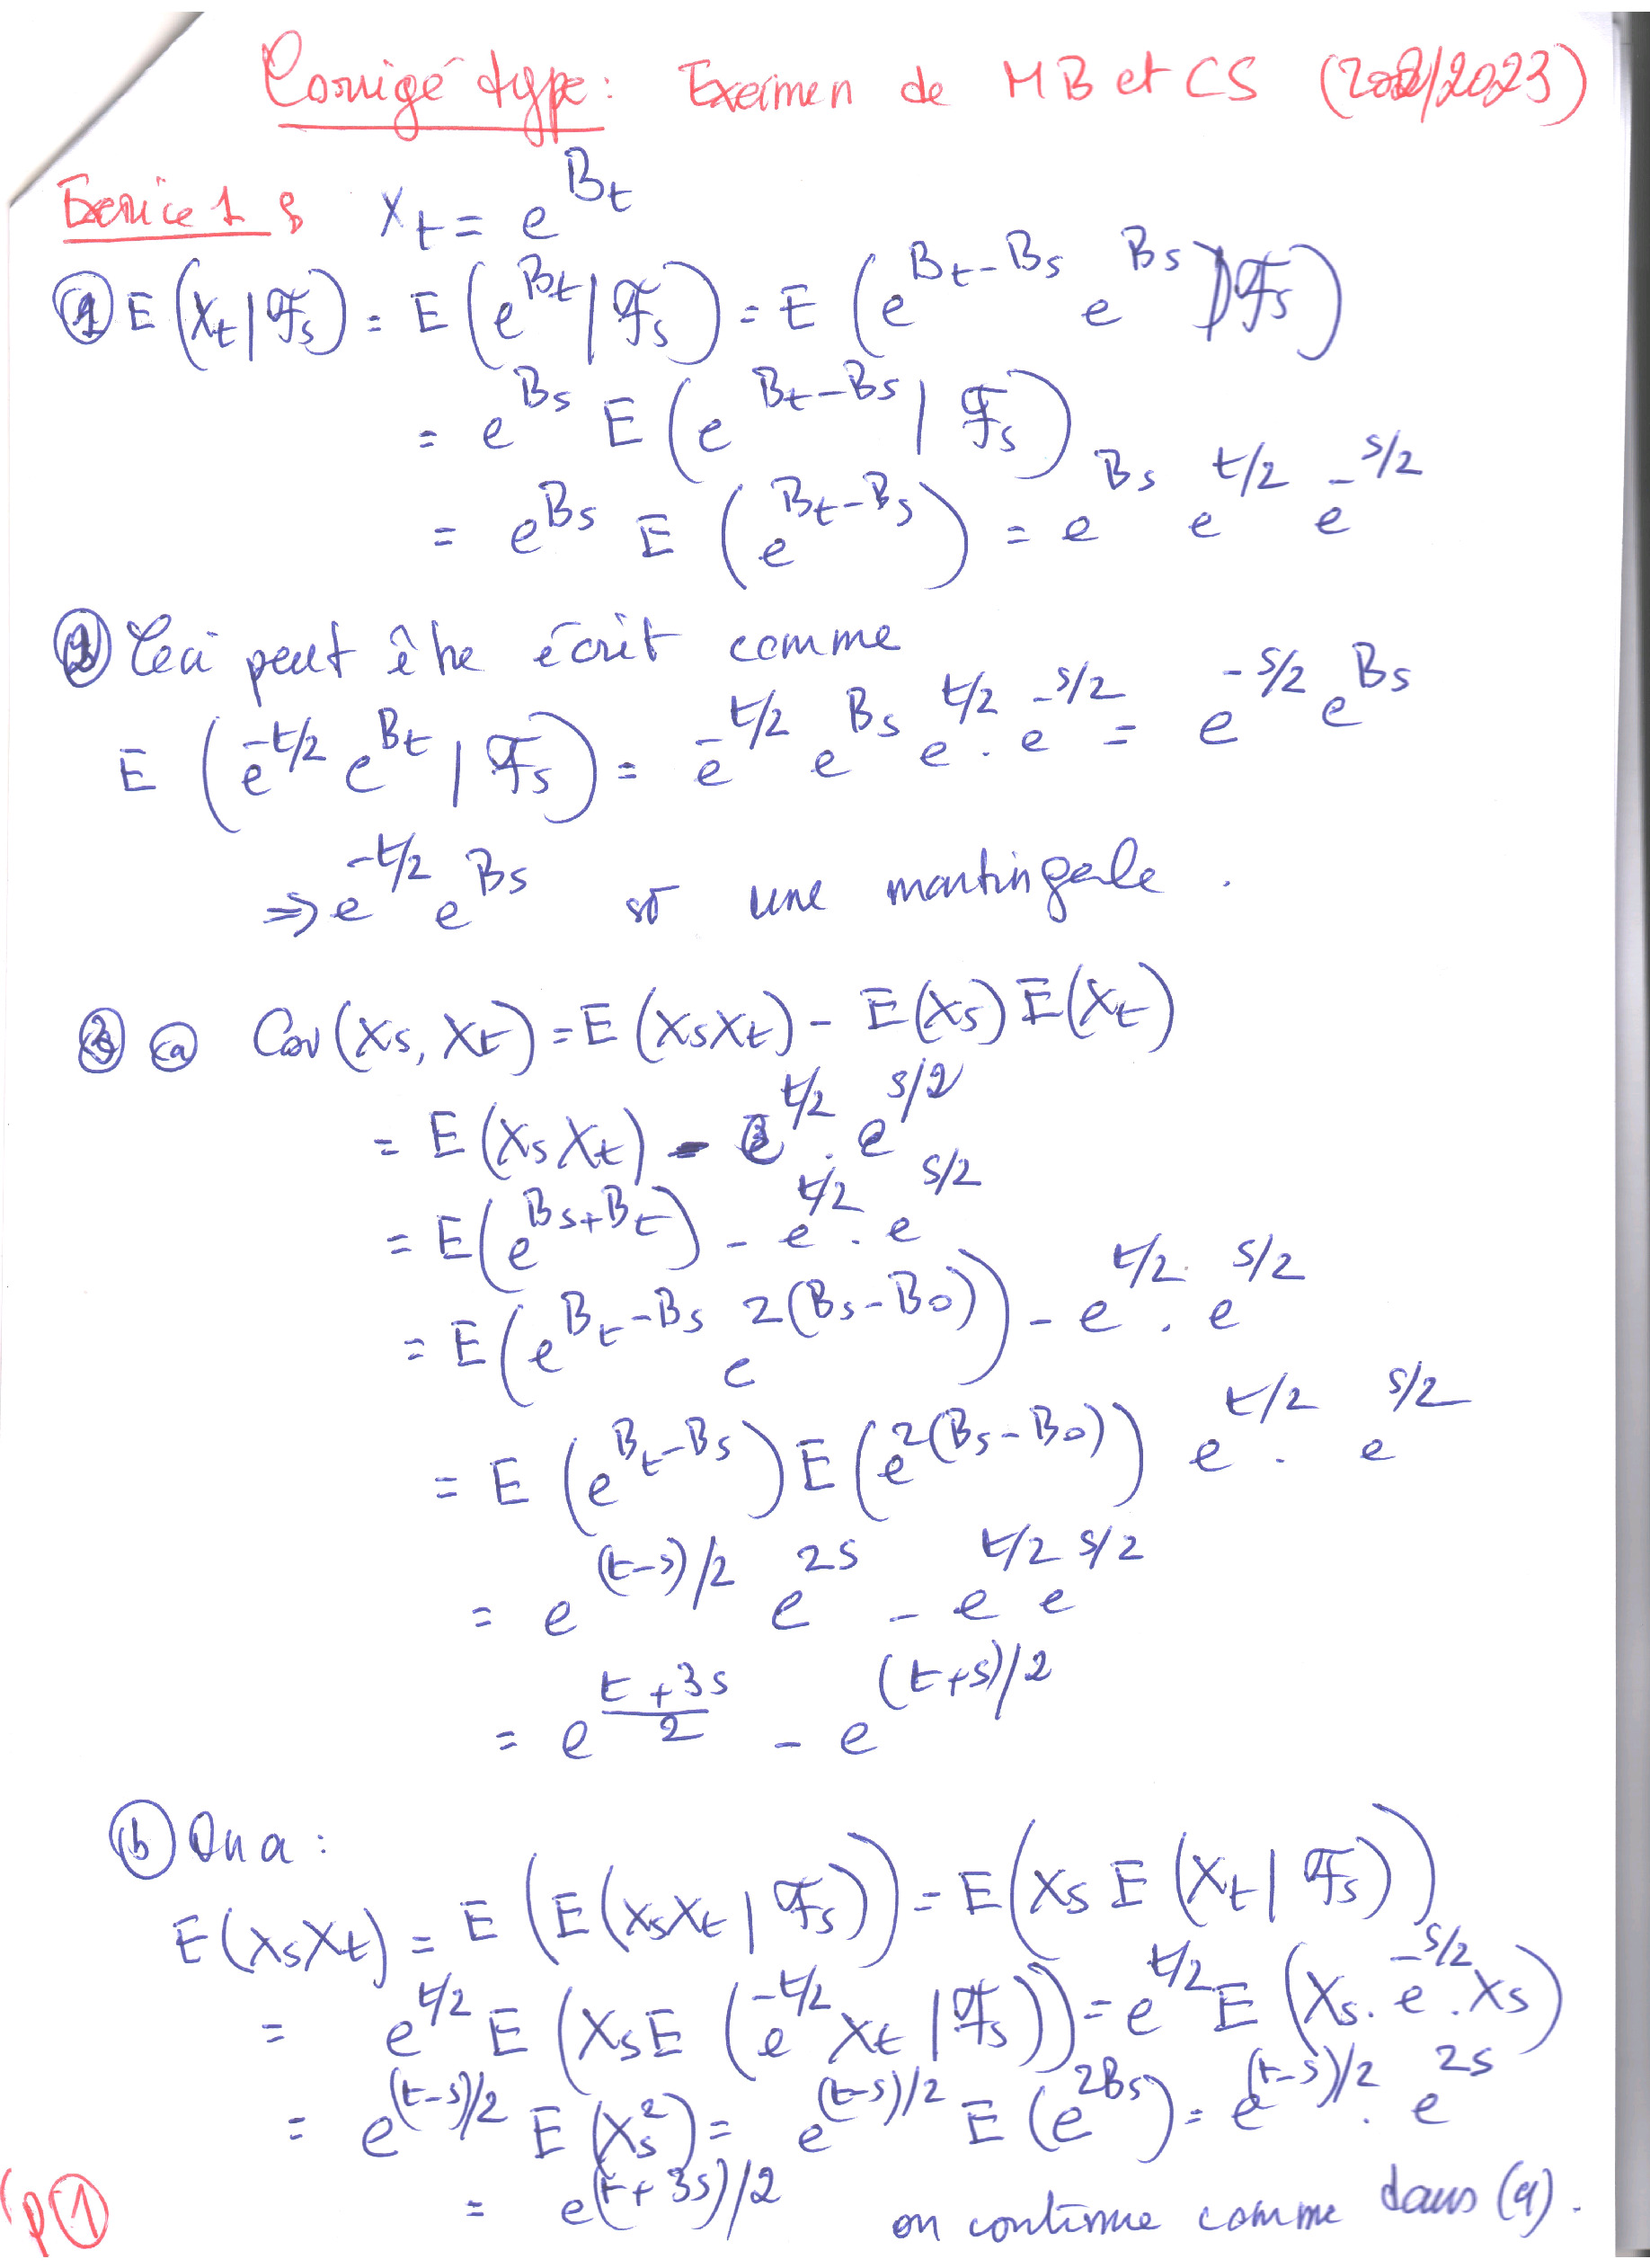 Corrigé type : Examen de MB et CS (2022/2023)
Exercice 1 : X_t = e^{B_t}
① E(X_t | F_s) = E(e^{B_t} | F_s) = E(e^{B_t - B_s} e^{B_s} | F_s)
= e^{B_s} E(e^{B_t - B_s} | F_s)
= e^{B_s} E(e^{B_t - B_s}) = e^{B_s} e^{t/2} e^{-s/2}
② Ceci peut être écrit comme
E(e^{-t/2} e^{B_t} | F_s) = e^{-t/2} e^{B_s} e^{t/2} . e^{-s/2} = e^{-s/2} e^{B_s}
⇒ e^{-t/2} e^{B_s} est une martingale .
③ ⓐ Cov(X_s, X_t) = E(X_s X_t) - E(X_s) E(X_t)
= E(X_s X_t) - e^{t/2} . e^{s/2}
= E(e^{B_s + B_t}) - e^{t/2} . e^{s/2}
= E(e^{B_t - B_s} e^{2(B_s - B_0)}) - e^{t/2} . e^{s/2}
= E(e^{B_t - B_s}) E(e^{2(B_s - B_0)}) e^{t/2} . e^{s/2}
= e^{(t-s)/2} e^{2s} - e^{t/2} e^{s/2}
= e^{\frac{t+3s}{2}} - e^{(t+s)/2}
ⓑ On a :
E(X_s X_t) = E(E(X_s X_t | F_s)) = E(X_s E(X_t | F_s))
= e^{t/2} E(X_s E(e^{-t/2} X_t | F_s)) = e^{t/2} E(X_s . e^{-s/2} . X_s)
= e^{(t-s)/2} E(X_s^2) = e^{(t-s)/2} E(e^{2B_s}) = e^{(t-s)/2} . e^{2s}
= e^{(t+3s)/2} on continue comme dans (a) .
P①